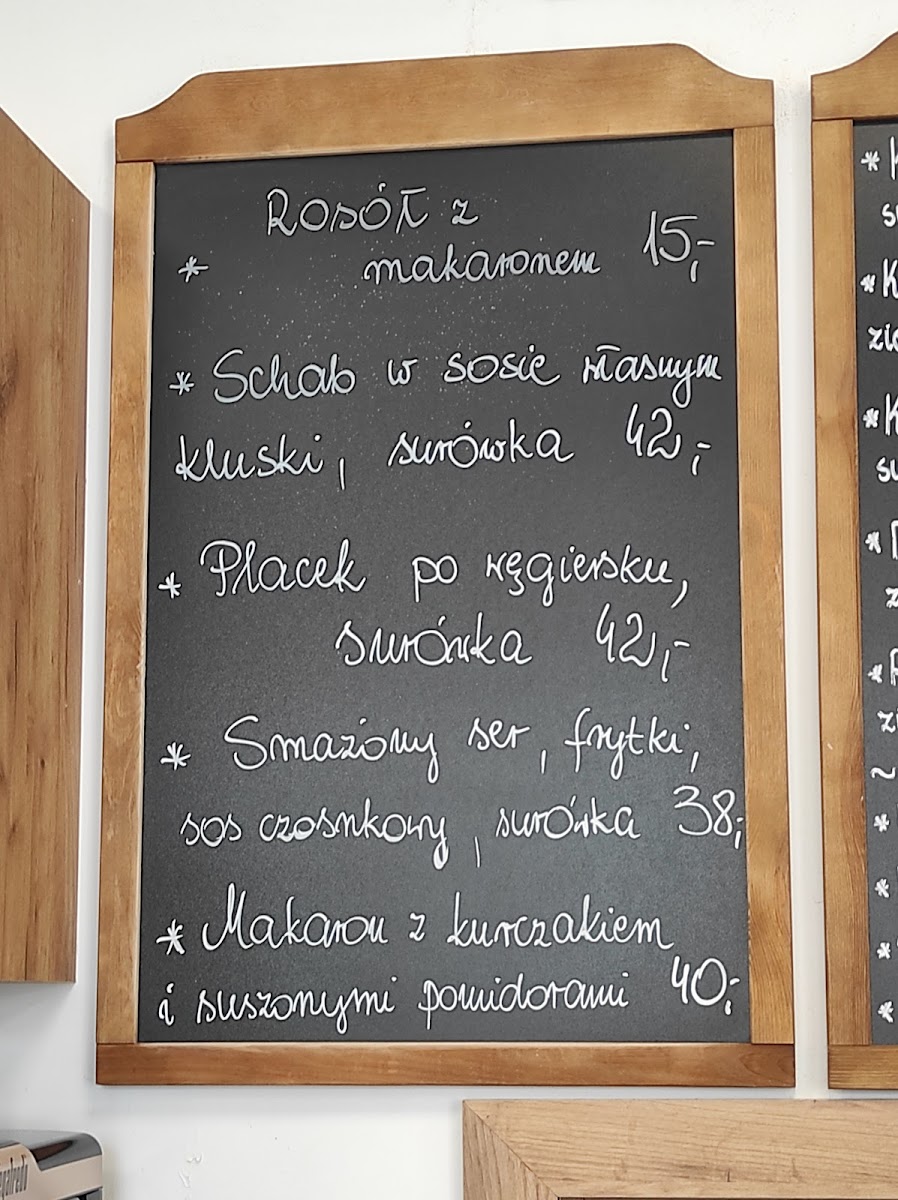 Rosół z
* makaronem 15,-
* Schab w sosie własnym
kluski, surówka 42,-
* Placek po węgiersku,
surówka 42,-
* Smażony ser, frytki,
sos czosnkowy, surówka 38,-
* Makaron z kurczakiem
i suszonymi pomidorami 40,-